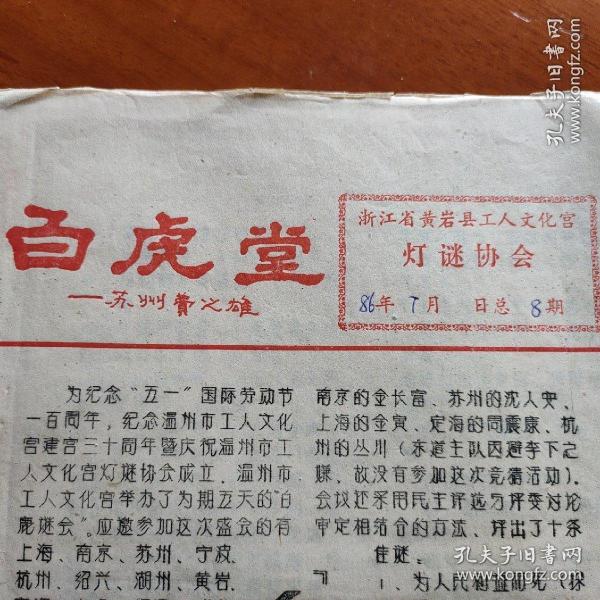 白虎堂
——苏州费之雄
浙江省黄岩县工人文化宫
灯谜协会
86年7月 日总 8期
为纪念“五一”国际劳动节
一百周年，纪念温州市工人文化
宫建宫三十周年暨庆祝温州市工
人文化宫灯谜协会成立，温州市
工人文化宫举办了为期五天的“白
鹿谜会”。应邀参加这次盛会的有
上海、南京、苏州、宁波、
杭州、绍兴、湖州、黄岩、
南京的金长富、苏州的沈人安、
上海的金寅、定海的周震康、杭
州的丛川（东道主队因避李下之
嫌，故没有参加这次竞猜活动）。
会议还采用民主评选与评委讨论
审定相结合的方法，评出了十条
佳谜。
1、为人民利益而死（探
孔夫子旧书网
www.kongfz.com
孔夫子旧书网
www.kongfz.com